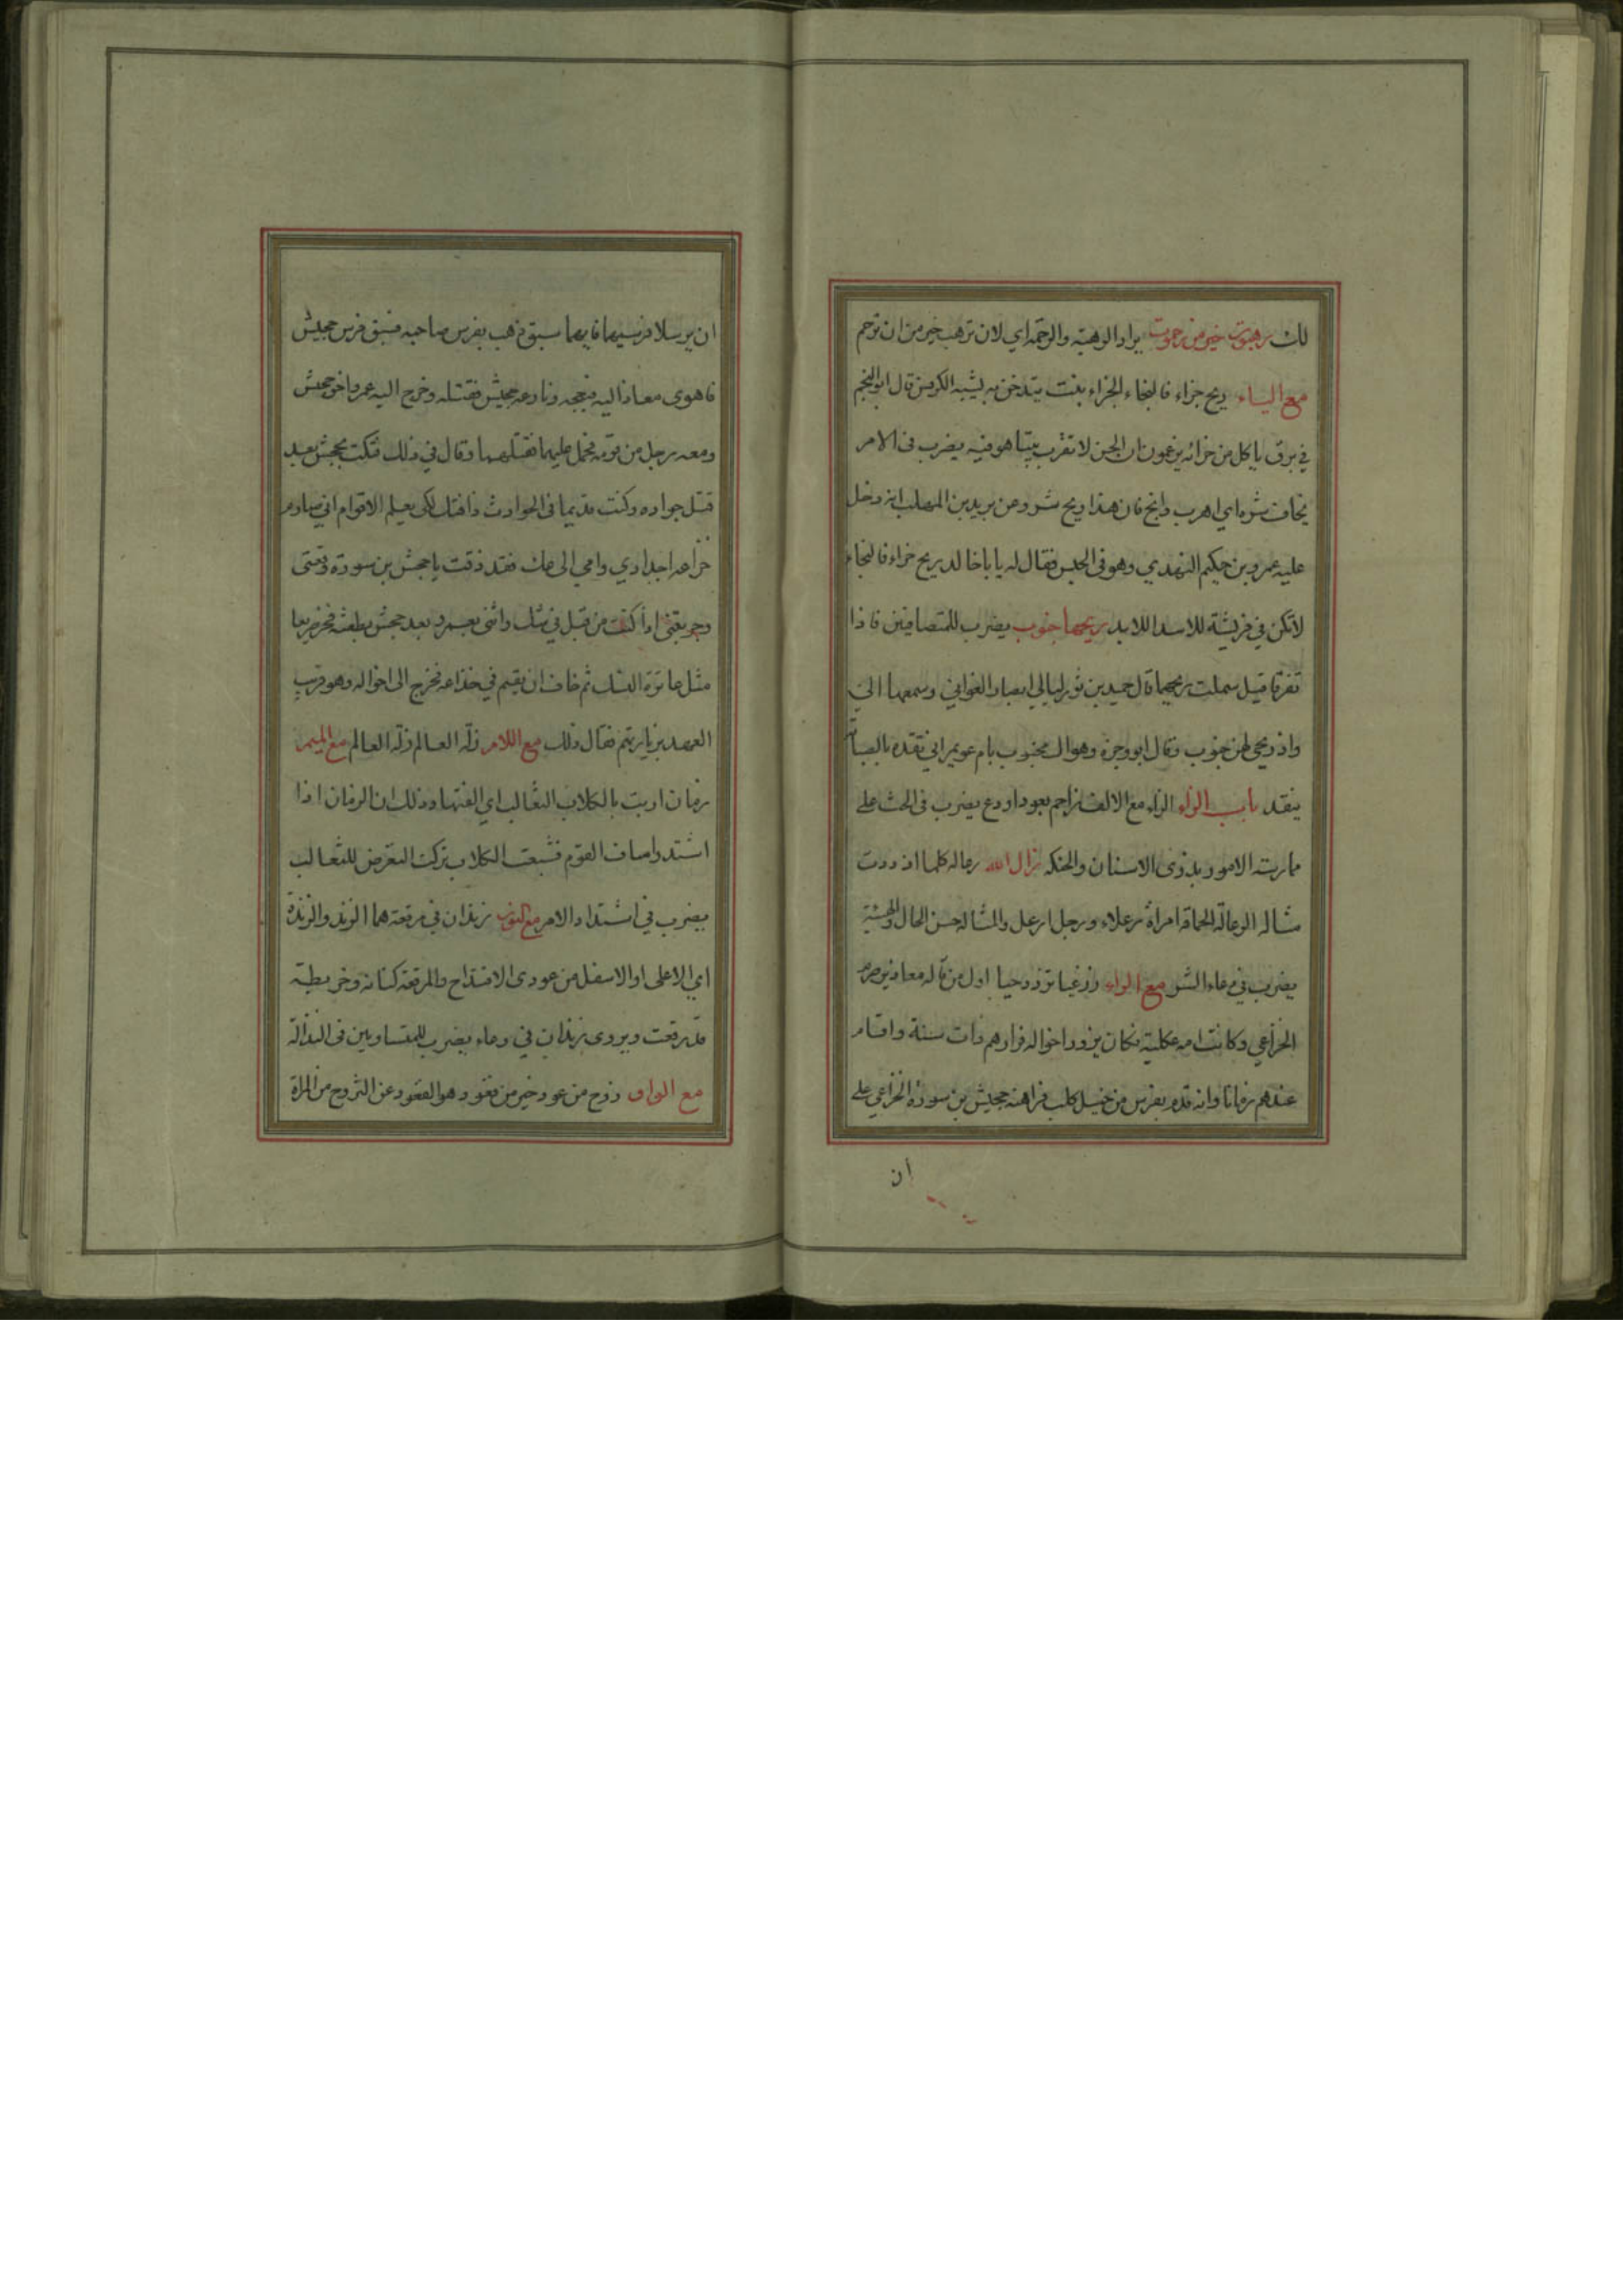 لك رهبوت خير من رحموت يراد الرهبة والرحمة اي لان ترهب خير من ان ترحم
مع الياء ريح حزاء فالنجاء الحزاء بنت يتدخن به يشبه الكرفس قال ابو النجم
في برق ياكل من حزائه يزعمون ان الجن لا تقرب بيتا هو فيه يضرب في الامر
يخاف شره اي اهرب وانج فان هذا ريح شر وعن يزيد بن المهلب انه دخل
عليه عمرو بن حكيم النهدي وهو في الحبس فقال له يا باخالد ريح حزاء فالنجاء
لا تكن في فريسة للاسد اللابد ريحها جنوب يضرب للمتصافيين فاذا
تفرقا قيل شملت ريحهما قال حميد بن ثور ليالي ابصار الغواني وسمعها الي
واذ ريحي لهن جنوب وقال ابو وجزة وهو ال مجنوب بام عويمر اني نقده بالصبا
ينقد باب الزاء الزاء مع الالف زاحم بعود او دع يضرب في الحث على
ممارسة الامور بذوي الاسنان والحنكه زال الله رعاله كلما ازددت
مثاله الرعالة الحماقة امراة رعلاء ورجل ارعل والمثاله حسن الحال والهيئة
يضرب في دعاء الشر مع الراء زرغبا تزدد حبا اول من قاله معاذ بن صرم
الخزاعي وكانت امه عكلية فكان يزور اخواله فزارهم ذات سنة واقام
عندهم زمانا وانه قدم بفرس من خيل كلب فراهنه جحيش بن سودة الخزاعي على
ان
ان يرسلا فرسيهما فايهما سبق ذهب بفرس صاحبه فسبق فرس جحيش
فاهوى معاذ اليه فبعجه ونازعه جحيش فقتله وخرج اليه عمرو اخو جحيش
ومعه رجل من قومه فحمل عليهما فقتلهما وقال في ذلك فتكت بجحش بعد
قتل جواده وكنت قديما في الحوادث ذا فتك لكي يعلم الاقوام اني صارم
خزاعة اجدادي وانمي الى عك فقد ذقت يا جحش بن سودة وقعتي
وجربتني اذ كنت من قبل في شك واثنى بعمرو بعد جحش بطعنة فخر صريعا
مثل عاترة النسك ثم خاف ان يقيم في خزاعه فخرج الى اخواله وهو قريب
العهد بزيارتهم فقال ذلك مع اللام زلة العالم زلة العالم مع الميم
زمان اربت بالكلاب الثعالب اي الفتها وذلك ان الزمان اذا
اشتد واساف القوم فشبعت الكلاب تركت التعرض للثعالب
يضرب في اشتداد الامر مع النون زندان في مرقعة هما الزند والزندة
اي الاعلى او الاسفل من عودي الاقتداح والمرقعة كنانة وخريطة
قد رقعت ويروى زندان في وعاء يضرب للمتساويين في النذالة
مع الواو زوج من عود خير من قعود هو القعود عن التزوج من المراة